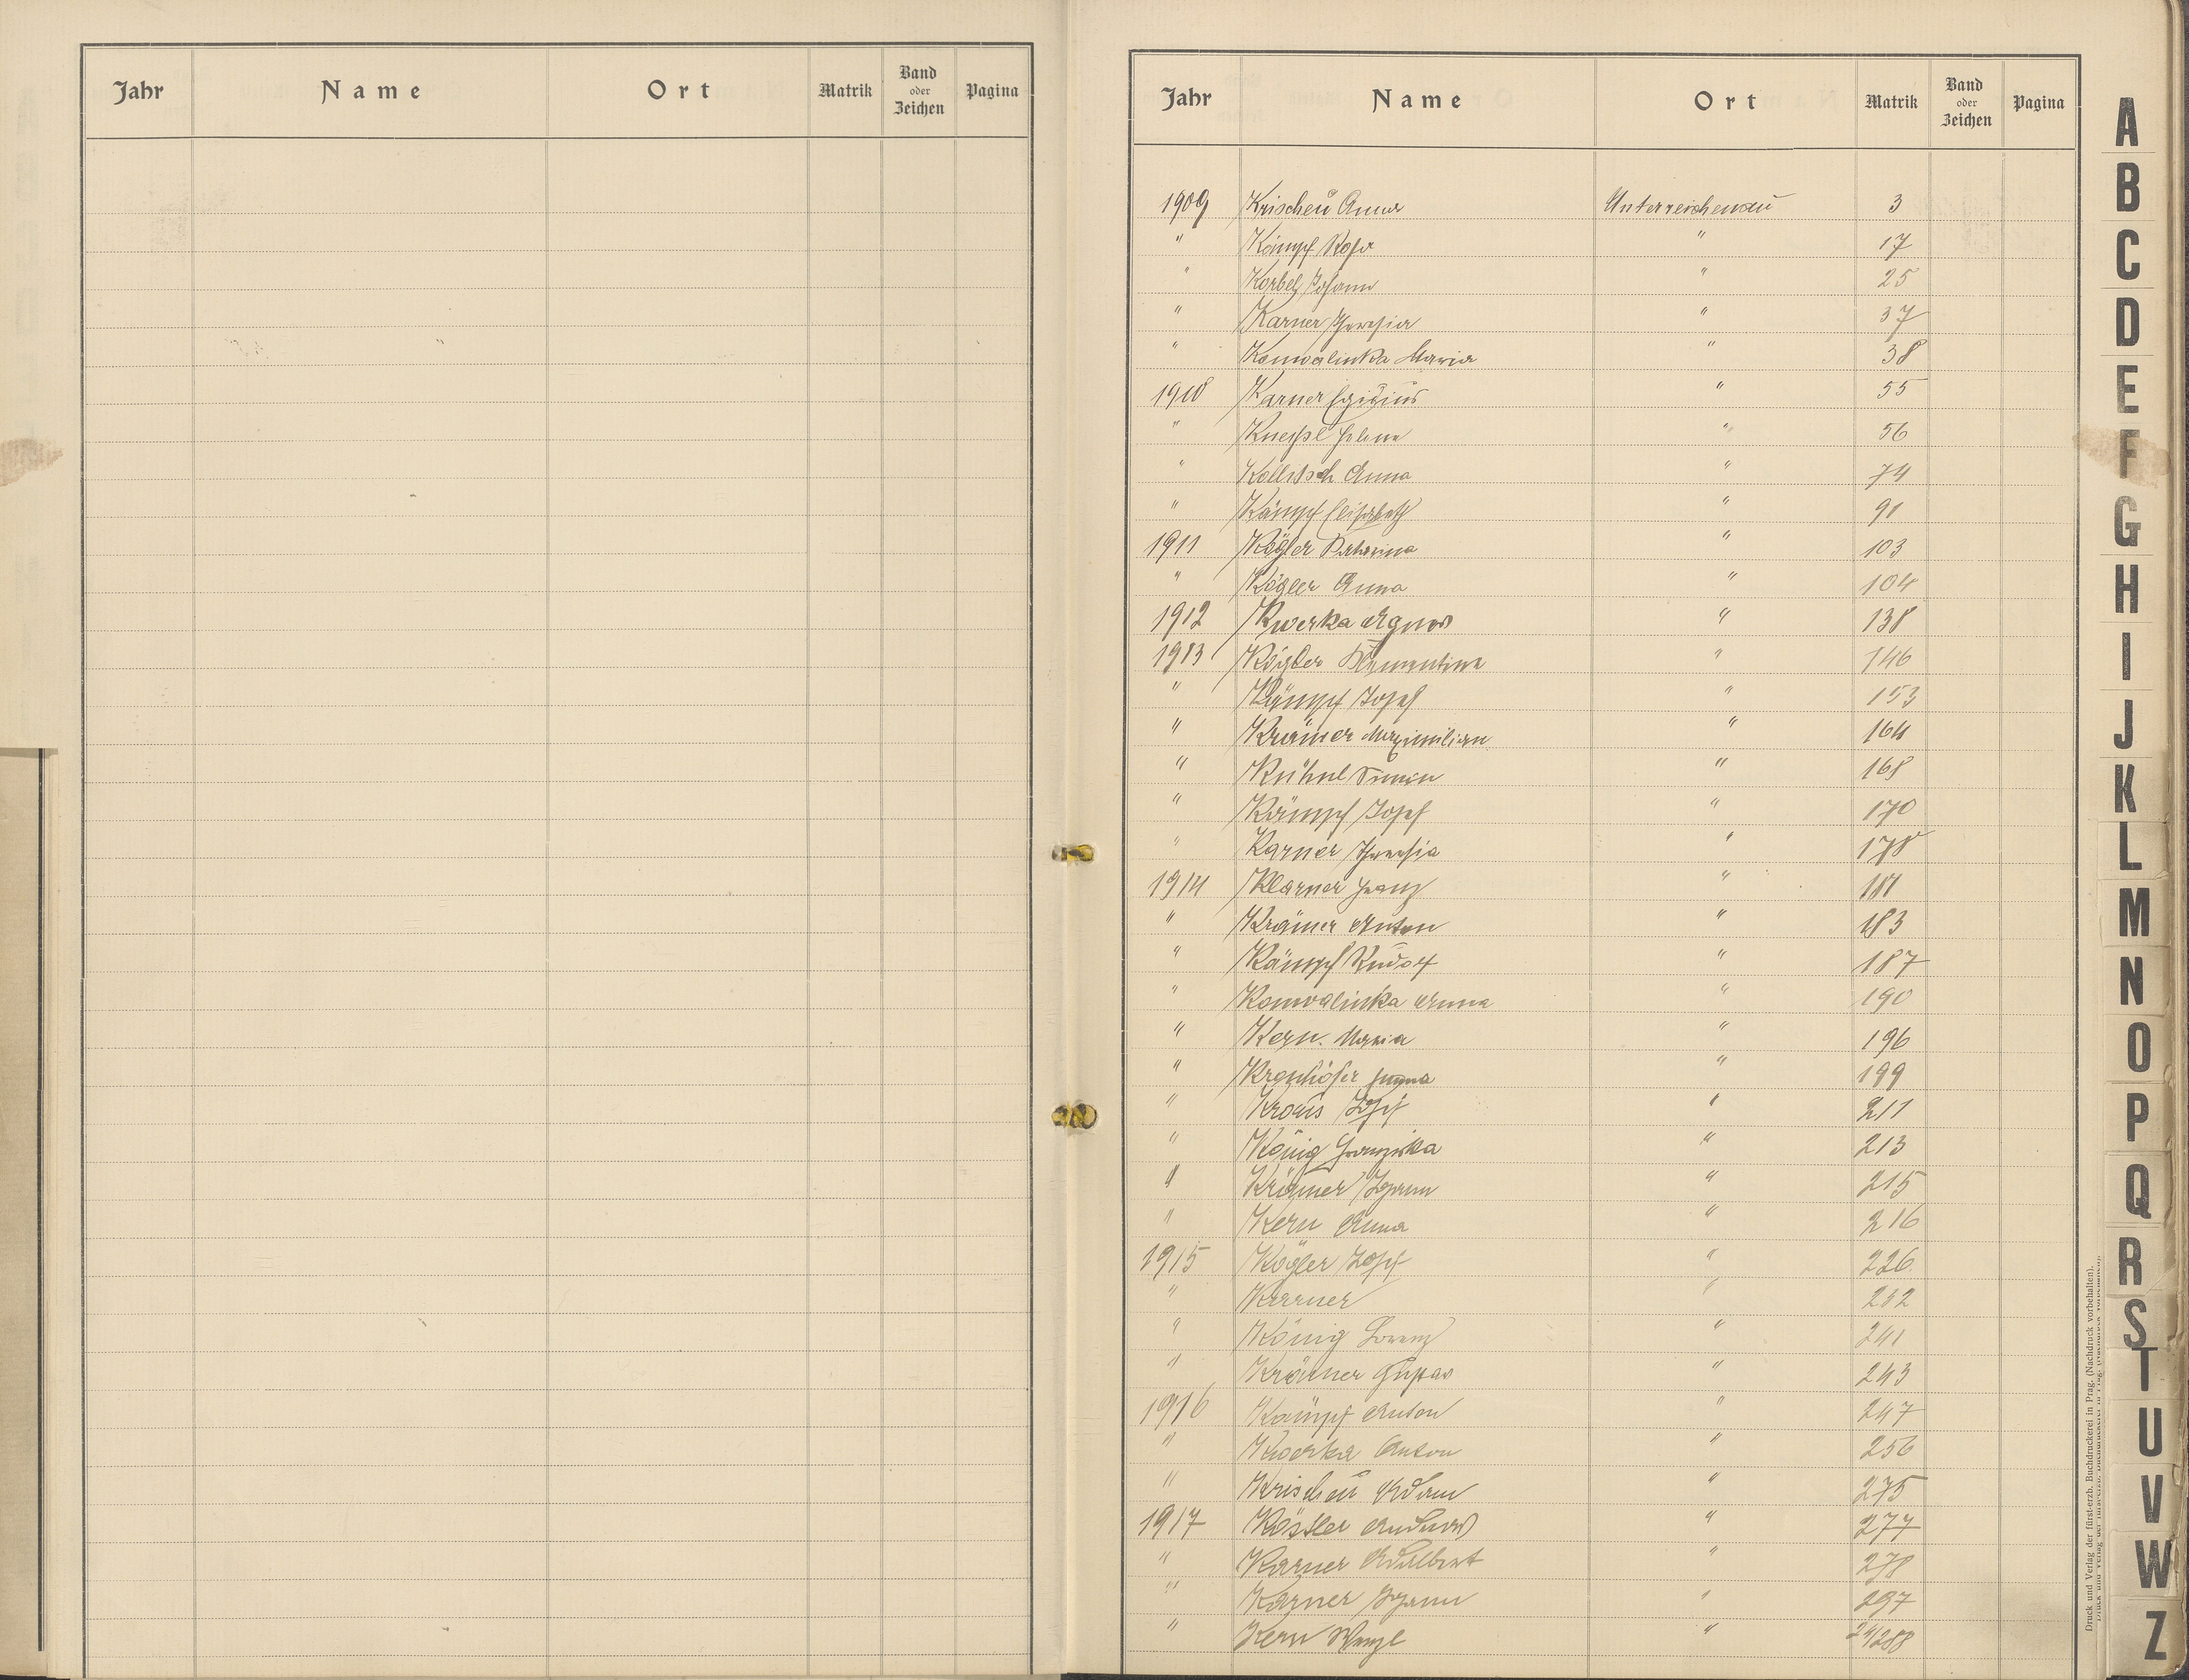 Jahr Name Ort Matrik Band oder Zeichen Pagina
Jahr Name Ort Matrik Band oder Zeichen Pagina
1909 Krischeũ Anna Unterreichenaũ 3
" Kämpf Rosa " 17
" Korbel Johann " 25
" Karner Theresia " 37
" Konwalinka Maria " 38
1910 Karner Egidius " 55
" Kneißl Helene " 56
" Kollitsch Anna " 74
" Kämpf Elisabeth " 91
1911 Kögler Katharina " 103
" Kögler Anna " 104
1912 Kwerka Agnes " 138
1913 Kögler Klementine " 146
" Kämpf Josef " 153
" Krämer Maximilian " 164
" Kühnl Simon " 168
" Kämpf Josef " 170
" Karner Theresia " 178
1914 Klarner Franz " 181
" Krämer Anton " 183
" Kämpf Rudolf " 187
" Konwalinka Anna " 190
" Kern Maria " 196
" Emma " 199
" Kraus Josef " 211
" König Franziska " 213
" Krämer Johann " 215
" Kern Anna " 216
1915 Kögler Josef " 226
" Karner " 232
" König Lorenz " 241
" Krämer Gustav " 243
1916 Kämpf Anton " 247
" Kwerka Anton " 256
" Krischeũ Adam " 275
1917 Kössler Andreas " 277
" Karner Adalbert " 278
" Karner Johann " 297
" Kern Wenzl " 288
A
B
C
D
E
F
G
H
I
J
K
L
M
N
O
P
Q
R
S
T
U
V
W
Z
Druck und Verlag der fürst-erzb. Buchdruckerei in Prag. (Nachdruck vorbehalten).